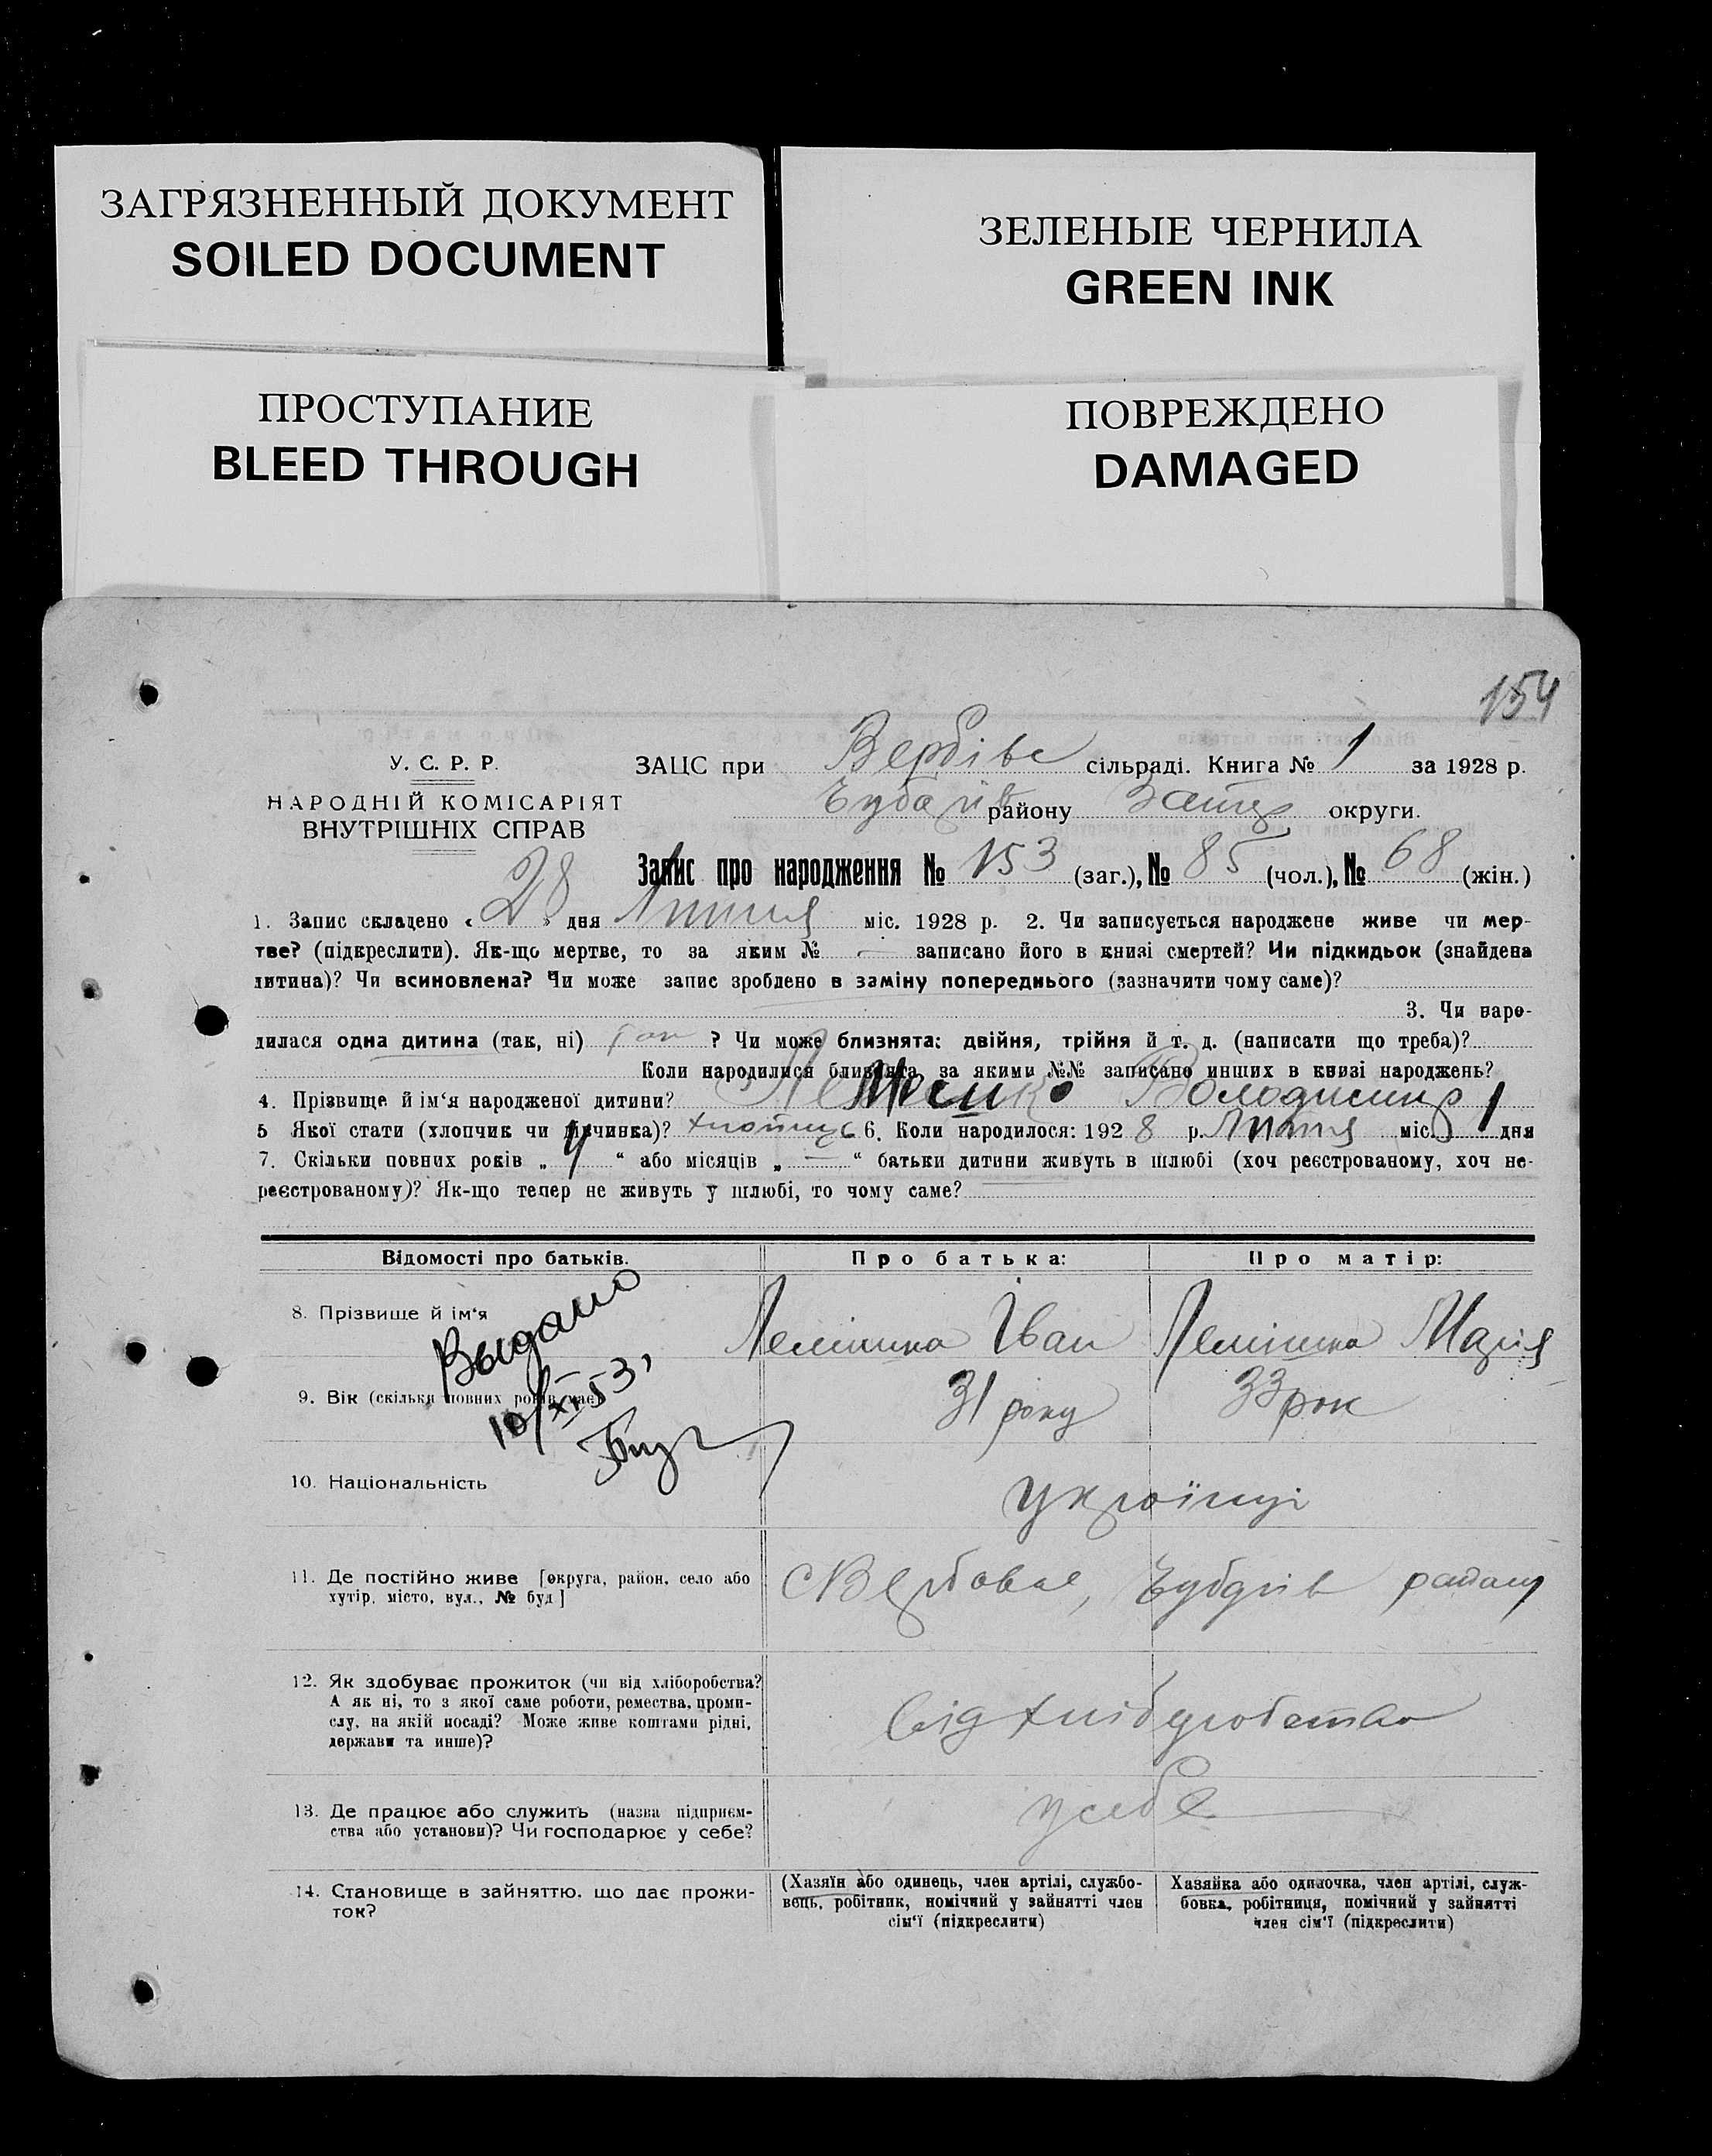 ЗАГРЯЗНЕННЫЙ ДОКУМЕНТ
SOILED DOCUMENT
ЗЕЛЕНЫЕ ЧЕРНИЛА
GREEN INK
ПРОСТУПАНИЕ
BLEED THROUGH
ПОВРЕЖДЕНО
DAMAGED
154
У. С. Р. Р.
НАРОДНІЙ КОМІСАРІЯТ
ВНУТРІШНІХ СПРАВ
ЗАЦС при Вербівс сільраді. Книга № 1 за 1928 р.
району округи.
Запис про народження № 153 (заг.), № 85 (чол.), № 68 (жін.)
1. Запис складено « 28 » дня Липня міс. 1928 р. 2. Чи записується народжене живе чи мер-
тве? (підкреслити). Як-що мертве, то за яким № — записано його в книзі смертей? Чи підкидьок (знайдена
дитина)? Чи всиновлена? Чи може запис зроблено в заміну попереднього (зазначити чому саме)?
3. Чи наро-
дилася одна дитина (так, ні) так ? Чи може близнята: двійня, трійня й т. д. (написати що треба)?
Коли народилися близнята, за якими №№ записано инших в книзі народжень?
4. Прізвище й ім‘я народженої дитини? Володимир
5 Якої стати (хлопчик чи дівчинка)? хлопчик 6. Коли народилося: 192 8 р. Липня міс. 1 дня
7. Скільки повних років „ 4 “ або місяців „ — “ батьки дитини живуть в шлюбі (хоч реєстрованому, хоч не-
реєстрованому)? Як-що тепер не живуть у шлюбі, то чому саме?
Відомості про батьків. Про батька: Про матір:
8. Прізвище й ім‘я Лемішка Іван Лемішка Марія
Выдано
10/XI 53,
9. Вік (скільки повних років має) 31 року 33 рок
10. Національність українці
11. Де постійно живе [округа, район, село або
хутір, місто, вул., № буд]
с Вербовка, району
12. Як здобуває прожиток (чи від хліборобства?
А як ні, то з якої саме роботи, ремества, проми-
слу, на якій посаді? Може живе коштами рідні,
держави та инше)?
від хліборобства
13. Де працює або служить (назва підприєм-
ства або установи)? Чи господарює у себе?
у себе
14. Становище в зайняттю, що дає прожи-
ток?
(Хазяїн або одинець, член артілі, службо-
вець, робітник, помічний у зайнятті член
сім‘ї (підкреслити)
Хазяйка або одиночка, член артілі, служ-
бовка, робітниця, помічний у зайнятті
член сім‘ї (підкреслити)